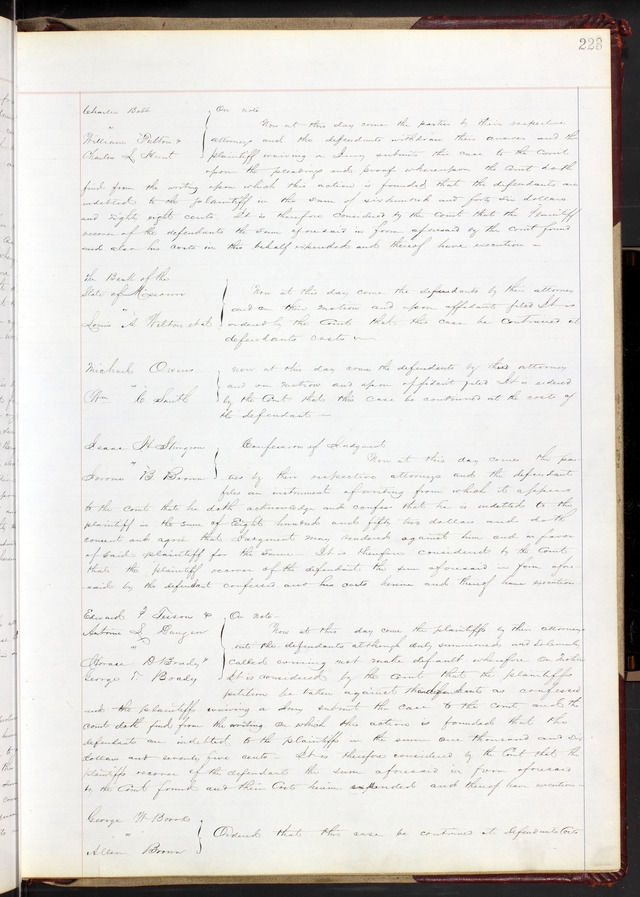 223
Charles Babb } On note
" Now at this day come the parties by their respective
William Patton & attorneys and the defendants withdraw their answer and the
Charles L Hunt plaintiff waiving a Jury submits this case to the Court
upon the pleadings and proof whereupon the Court doth
find from the writing upon which this action is founded that the defendants are
indebted to the plaintiff in the sum of six hundred and forty six dollars
and Eighty eight cents It is therefore Considered by the Court that the Plaintiff
recover of the defendants the sum aforesaid in form aforesaid by the Court found
and also his costs in this behalf expended and thereof have execution –
The Bank of the
State of Missouri } Now at this day come the defendants by their attorney
" and on their motion and upon affidavit filed It is
Louis A Wilton et al ordered by the Court that this case be Continued at
defendants costs –
Michael Owens } now at this day come the defendants by their attorney
" and on motion and upon affidavit filed It is ordered
Wm C Smith by the Court that this case be continued at the costs of
the defendants –
Isaac H } Confession of Judgment
" Now at this day comes the par
B Brown ties by their respective attorneys and the defendant
files an instrument of writing from which it appears
to the court that he doth acknowledge and confess that he is indebted to the
plaintiff in the sum of Eight hundred and fifty two dollars and doth
consent and agree that Judgment may rendered against him and in favor
of said plaintiff for the same – It is therefore considered by the Court
that the plaintiff recover of the defendant the sum aforesaid in form afore
said by the defendant confessed and his costs herein and thereof have execution
Edward F & } On note –
Antoine L Now at this day come the plaintiffs by their attorney
" and the defendants although duly summoned and solemnly
Horace D Brady & called coming not make default wherefore on motion
George T Brady It is considered by the Court that the plaintiffs
petition be taken against the defendants as confessed
and the plaintiffs waiving a Jury submit the case to the Court and the
court doth find from the writing on which this action is founded that the
defendants are indebted to the plaintiffs in the sum one thousand and six
dollars and seventy five cents – It is therefore considered by the Court that the
plaintiffs recover of the defendant the sum aforesaid in form aforesaid
by the Court found and their Costs herein expended and thereof have execution –
George W }
" Ordered that this case be continued at defendants Costs
Allen Brown